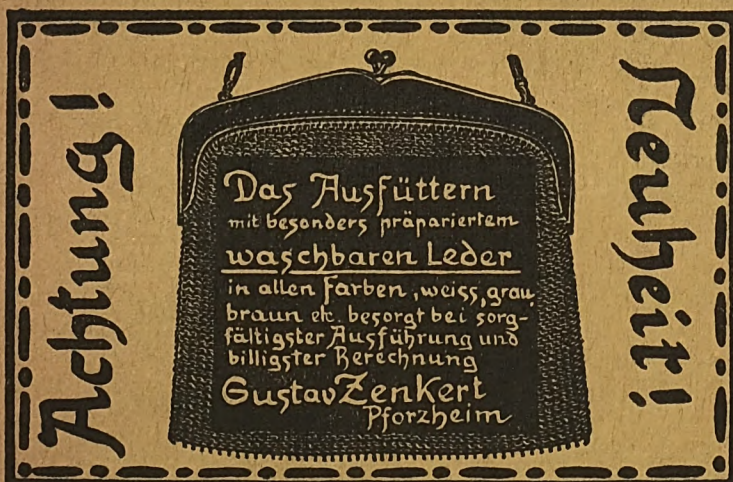 Achtung!
Das Ausfüttern
mit besonders präpariertem
waschbaren Leder
in allen Farben, weiss, grau,
braun etc. besorgt bei sorg-
fältigster Ausführung und
billigster Berechnung
Gustav Zenkert
Pforzheim
Neuheit!